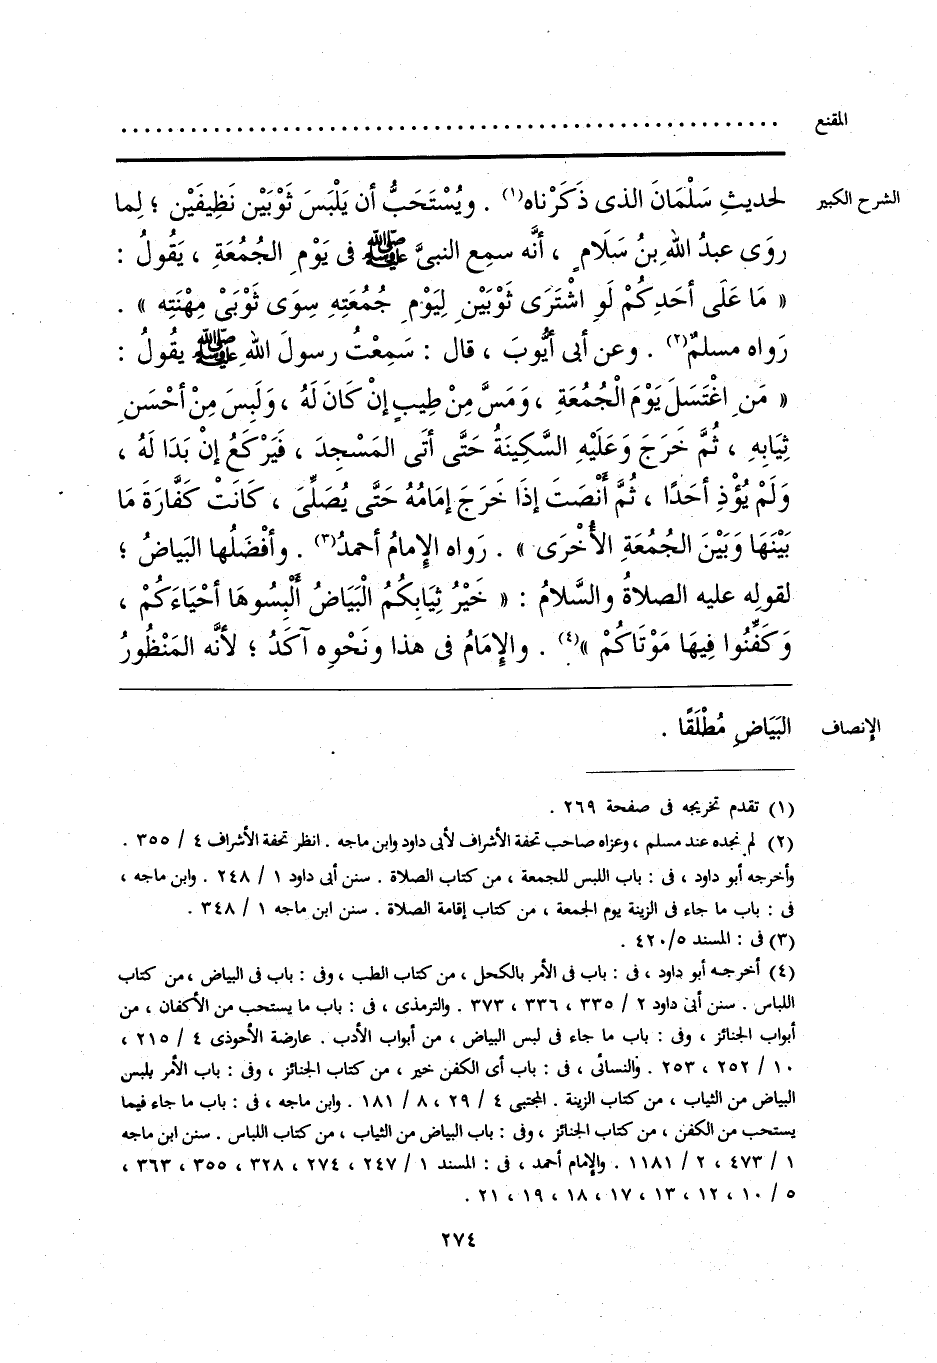 المقنع ................................................
الشرح الكبير لحديثِ سَلْمَانَ الذى ذَكَرْناه(١) . ويُسْتَحَبُّ أن يَلْبَسَ ثَوْبَيْن نَظِيفَيْن ؛ لِما
روَى عبدُ اللهِ بنُ سَلَامٍ ، أنَّه سمِع النبىَّ ﷺ فى يَوْمِ الجُمُعَةِ ، يَقُولُ :
« مَا عَلَى أحَدِكُمْ لَوِ اشْتَرَى ثَوْبَيْنِ لِيَوْمِ جُمُعَتِهِ سِوَى ثَوْبَىْ مِهْنَتِه » .
رَواه مسلمٌ(٢) . وعن أبى أيُّوبَ ، قال : سَمِعْتُ رسولَ اللهِ ﷺ يقُولُ :
« مَنِ اغْتَسَلَ يَوْمَ الْجُمُعَةِ ، وَمَسَّ مِنْ طِيبٍ إنْ كَانَ لَهُ ، وَلَبِسَ مِنْ أحْسَنِ
ثِيَابِهِ ، ثُمَّ خَرَجَ وَعَلَيْهِ السَّكِينَةُ حَتَّى أتَى المَسْجِدَ ، فَيَرْكَعُ إنْ بَدَا لَهُ ،
وَلَمْ يُؤْذِ أحَدًا ، ثُمَّ أَنْصَتَ إذَا خَرَجَ إمَامُهُ حَتَّى يُصَلِّىَ ، كَانَتْ كَفَّارَةَ مَا
بَيْنَهَا وَبَيْنَ الجُمُعَةِ الأُخْرَى » . رَواه الإمامُ أحمدُ(٣) . وأفْضَلُها البَياضُ ؛
لقولِه عليه الصلاةُ والسَّلامُ : « خَيْرُ ثِيَابِكُمُ الْبَيَاضُ أَلْبِسُوهَا أحْيَاءَكُمْ ،
وَكَفِّنُوا فِيهَا مَوْتَاكُمْ »(٤) . والإِمَامُ فى هذا ونَحْوِه آكَدُ ؛ لأنَّه المَنْظُورُ
الإنصاف البَيَاضِ مُطْلَقًا .
(١) تقدم تخريجه فى صفحة ٢٦٩ .
(٢) لم نجده عند مسلم ، وعزاه صاحب تحفة الأشراف لأبى داود وابن ماجه . انظر تحفة الأشراف ٤ / ٣٥٥ .
وأخرجه أبو داود ، فى : باب اللبس للجمعة ، من كتاب الصلاة . سنن أبى داود ١ / ٢٤٨ . وابن ماجه ،
فى : باب ما جاء فى الزينة يوم الجمعة ، من كتاب إقامة الصلاة . سنن ابن ماجه ١ / ٣٤٨ .
(٣) فى : المسند ٤٢٠/٥ .
(٤) أخرجه أبو داود ، فى : باب فى الأمر بالكحل ، من كتاب الطب ، وفى : باب فى البياض ، من كتاب
اللباس . سنن أبى داود ٢ / ٣٣٥ ، ٣٣٦ ، ٣٧٣ . والترمذى ، فى : باب ما يستحب من الأكفان ، من
أبواب الجنائز ، وفى : باب ما جاء فى لبس البياض ، من أبواب الأدب . عارضة الأحوذى ٤ / ٢١٥ ،
١٠ / ٢٥٢ ، ٢٥٣ . والنسائى ، فى : باب أى الكفن خير ، من كتاب الجنائز ، وفى : باب الأمر بلبس
البياض من الثياب ، من كتاب الزينة . المجتبى ٤ / ٢٩ ، ٨ / ١٨١ . وابن ماجه ، فى : باب ما جاء فيما
يستحب من الكفن ، من كتاب الجنائز ، وفى : باب البياض من الثياب ، من كتاب اللباس . سنن ابن ماجه
١ / ٤٧٣ ، ٢ / ١١٨١ . والإمام أحمد ، فى : المسند ١ / ٢٤٧ ، ٢٧٤ ، ٣٢٨ ، ٣٥٥ ، ٣٦٣ ،
٥ / ١٠ ، ١٢ ، ١٣ ، ١٧ ، ١٨ ، ١٩ ، ٢١ .
٢٧٤